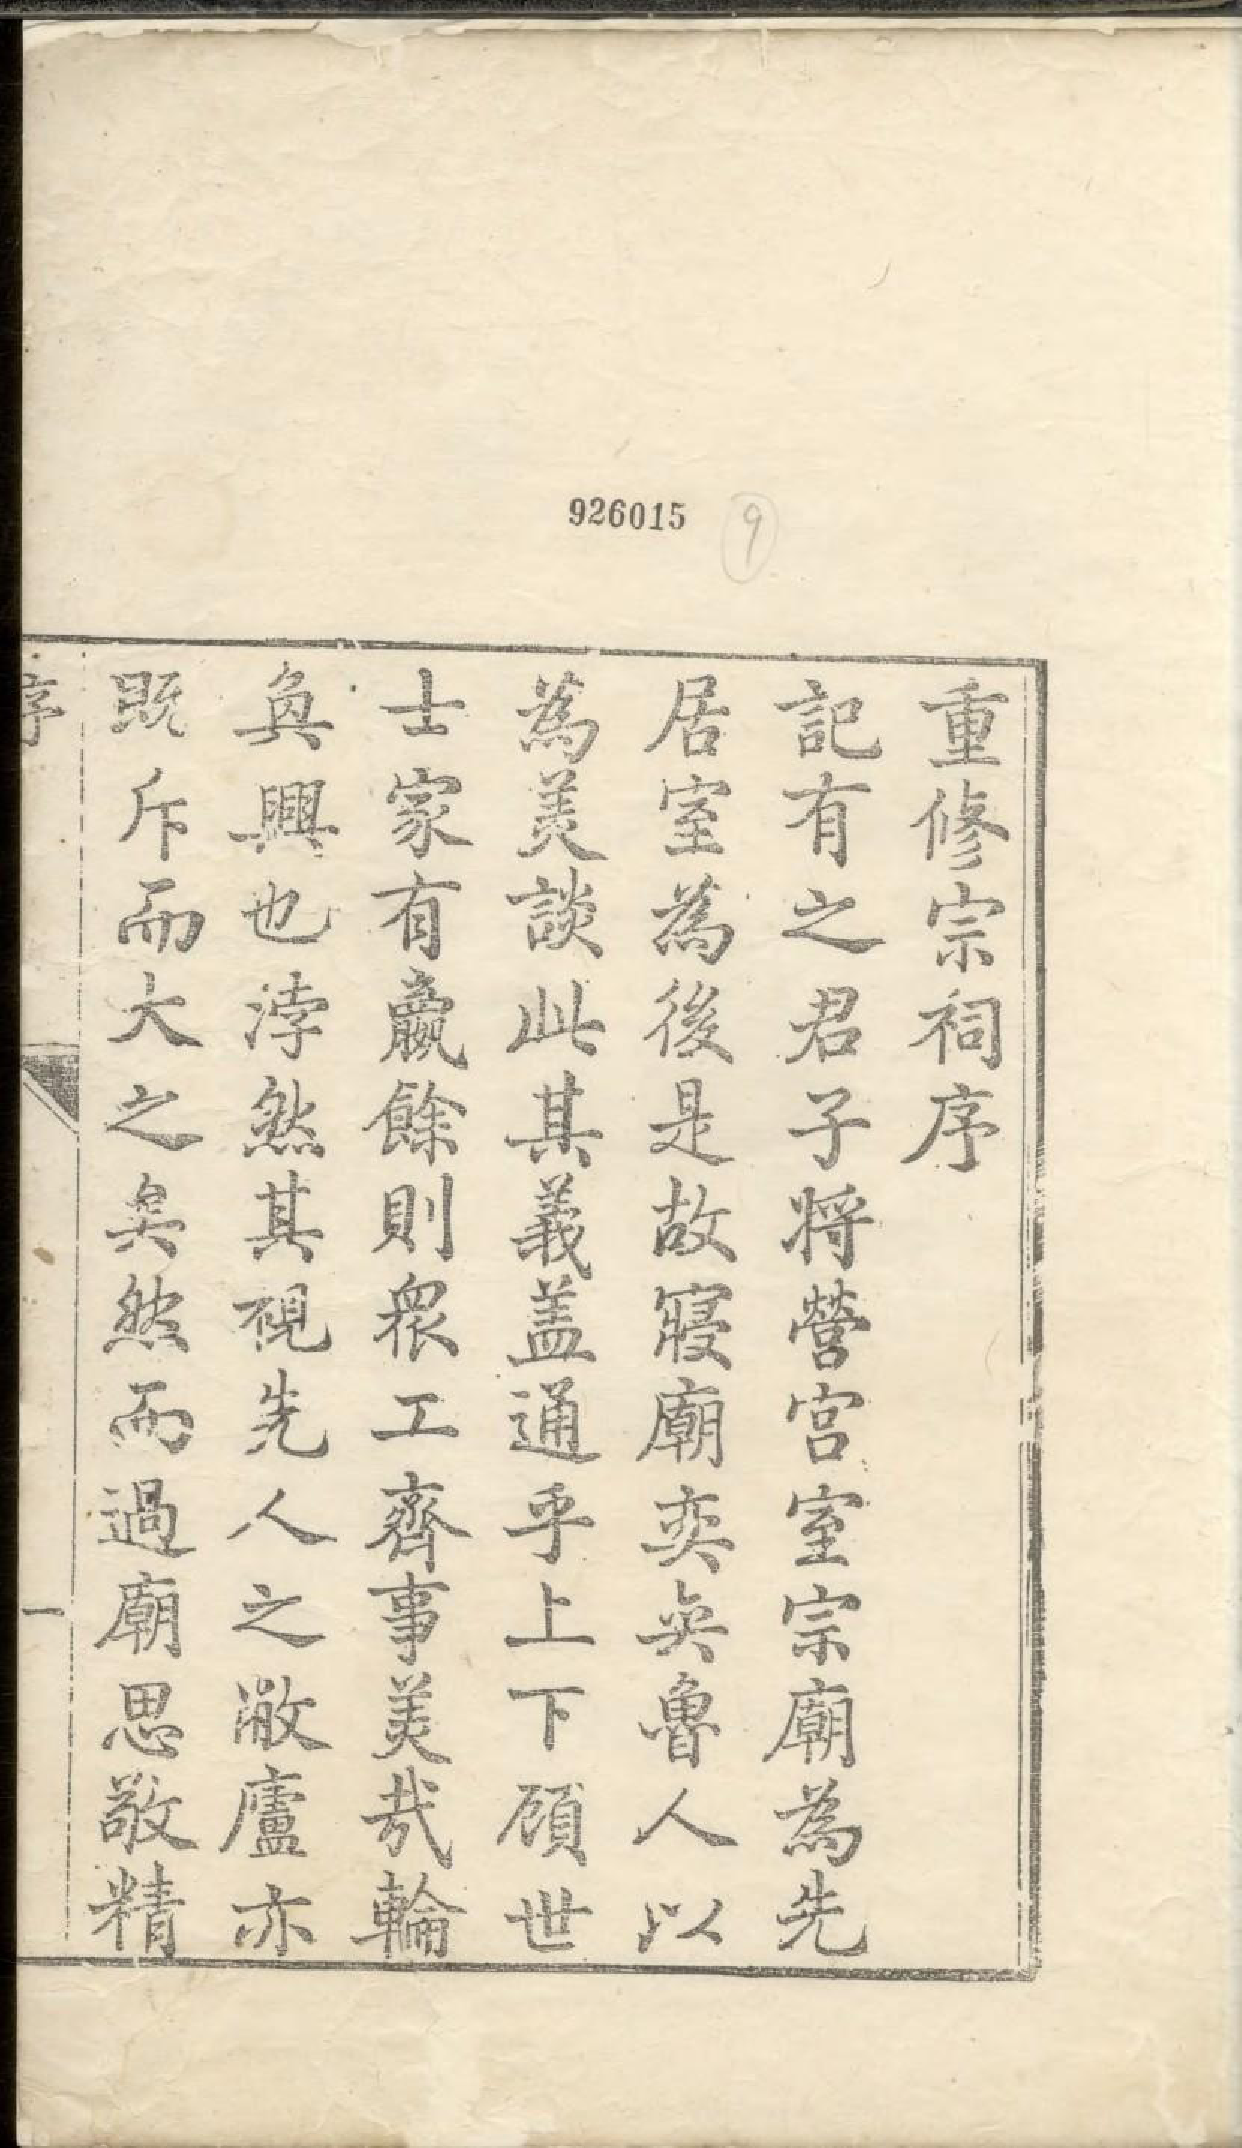 926015
9
重修宗祠序
記有之君子將營宮室宗廟為先
居室為後是故寢廟奕奕魯人以
為美談此其義蓋通乎上下顧世
士家有羸餘則眾工齊事美哉輪
奐興也浡然其視先人之敝廬亦
既斥而大之矣然而過廟思敬精
序
一